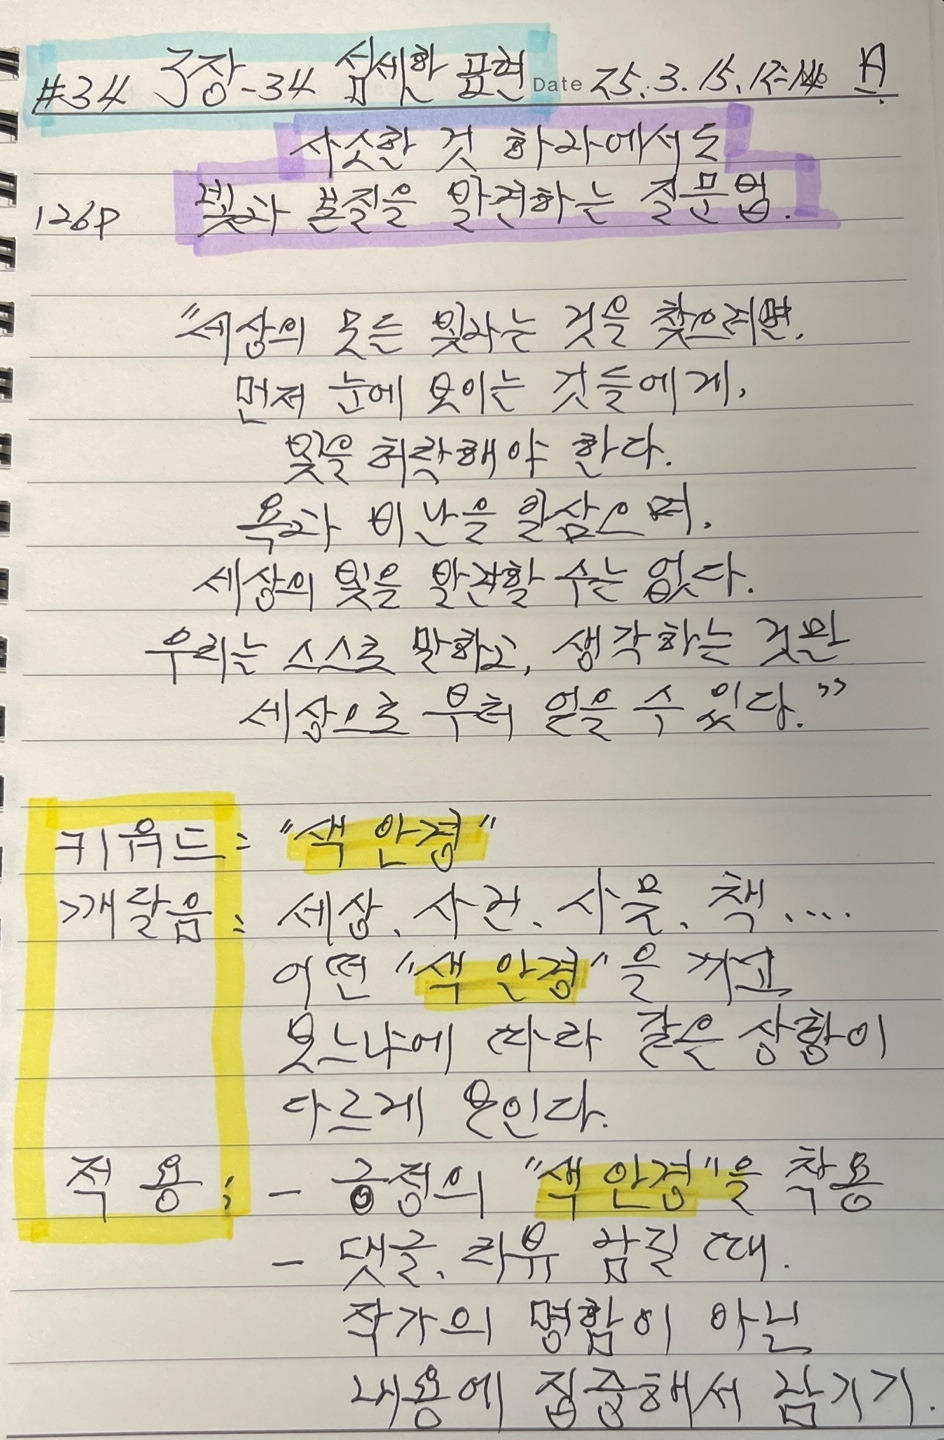 #34 3장-34 섬세한 표현 Date 25.3.15.12:14 A
사소한 것 하나에서도
126p 빛과 본질을 발견하는 질문법.
"세상의 모든 빛나는 것을 찾으려면,
먼저 눈에 보이는 것들에게,
빛을 허락해야 한다.
욕과 비난을 일삼으며,
세상의 빛을 발견할 수는 없다.
우리는 스스로 말하고, 생각하는 것만
세상으로 부터 얻을 수 있다."
키워드: "색 안경"
깨달음: 세상, 사건, 사물, 책, ....
어떤 "색 안경"을 끼고
보느냐에 따라 같은 상황이
다르게 보인다.
적 용: - 긍정의 "색 안경"을 착용
- 댓글, 리뷰 남길 때.
작가의 명함이 아닌
내용에 집중해서 남기기.